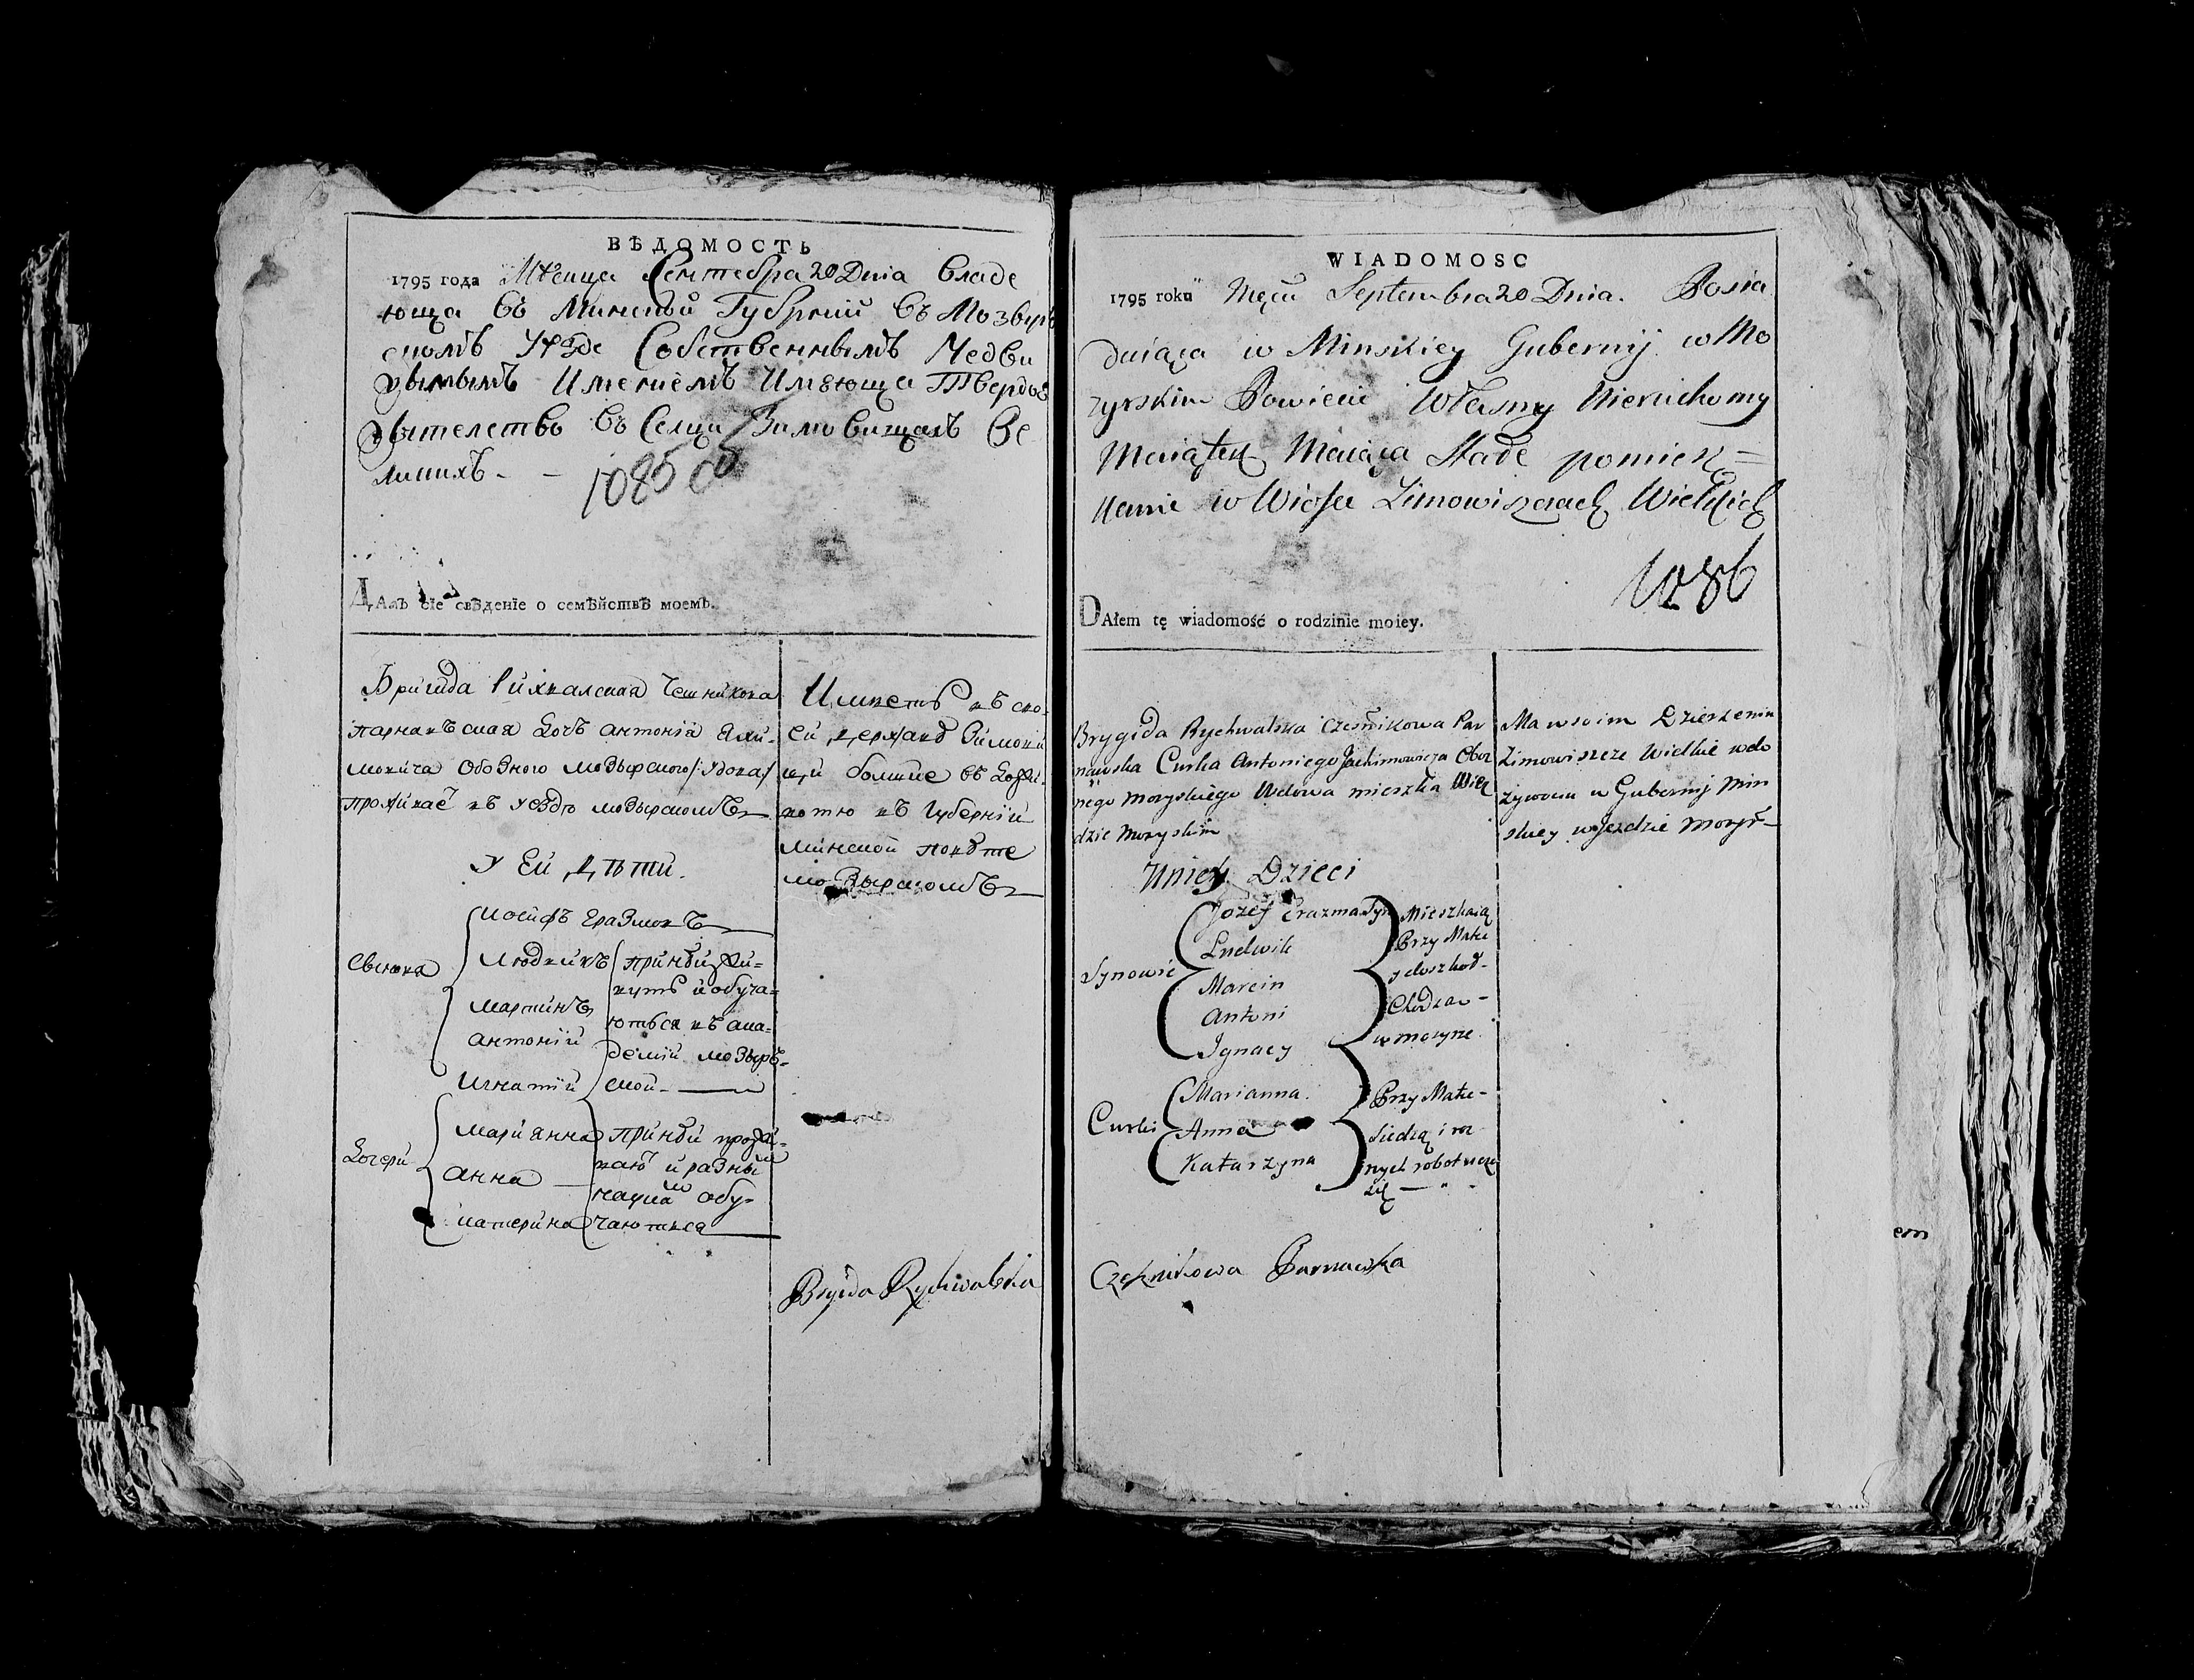 ВѢДОМОСТЬ
1795 года Мѣсица Сентебра 20 Dnia Владе
юща въ Минской Губрніи въ Мозыр
скомъ Уѣзде Собственнымъ Недви
жымымъ Имениемъ Имѣюща Твердое
жытелство въ Селци Зимовищахъ Ве
ликихъ - -
1085 об
ДАлъ сіе свѣденіе о семѣйствѣ моемъ.
Бригида Рихвалская Чешникова
парнавъская дочъ антоніа Яхи-
мовича Обозного мозырского /:удова:/
проживаѐ въ уезде мозырскомъ
У Ей дѣти.
Свинова
Иосифъ Еразмовъ
Людвикъ
Мартинъ
антоній
Игнатій
при ней жи-
вутъ и обуча-
ютъся въ ака-
демій мозыръ-
ской
Дочери
Марианна
анна
катерина
при ней прожи-
ваю и разны
наука обу-
чаютъся
Имеетъ въ сво-
ей державе Зимови
щи болшие въ дожи-
вотю въ губерній
Минской повете
мозырскомъ
Brygida Rychwalska
WIADOMOSC
1795 roku Męca Septembra 20 Dnia. Posia
duiąca w Minskiey Gubernij w Mo
zyrskim Powiecie Własny Nieruchomy
Maiątek Maiąca Stałe pomiesz=
kanie w Wiosce Zimowiszczach Wielkich
1086
DAłem tę wiadomość o rodzinie moiey.
Brygida Rychwalska Cześnikowa Par
nawska Curka Antoniego Jachimowicza Oboz
nego mozyrskiego Wdowa mieszka w Uiez
dzie mozyrskim
Uniey Dzieci
Synowie
Jozef Erazma Syn
Ludwik
Marcin
Antoni
Ignacy
Mieszkaią
Przy Matce
y do szkoł-
Chodzą-
w mozyrze
Curki
Marianna.
Anna
Katarzyna
Przy Matce-
siedzą i roz
nych robot uczą
się — " -
Ma w swoim Dzierzeniu
Zimowiszcze Wielkie w do
zywociu w Gubernij Min
skiey w Jezdzie mozyr-
Czesznikowa Parnawska
em